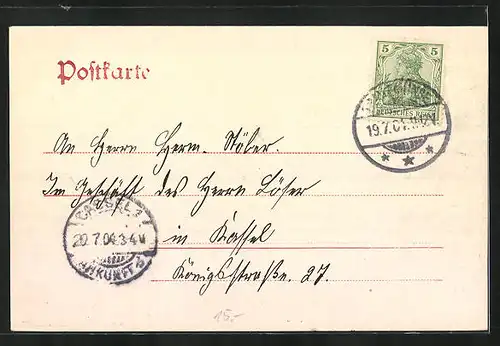 Postkarte
5
DEUTSCHES REICH
19.7.04
An Herrn Herm. Stöber.
Im Geschäft des Herrn Löser
in Kassel
Königsstraße. 27.
CASSEL
20.7.04.3-4V
ANKUNFT
15.-